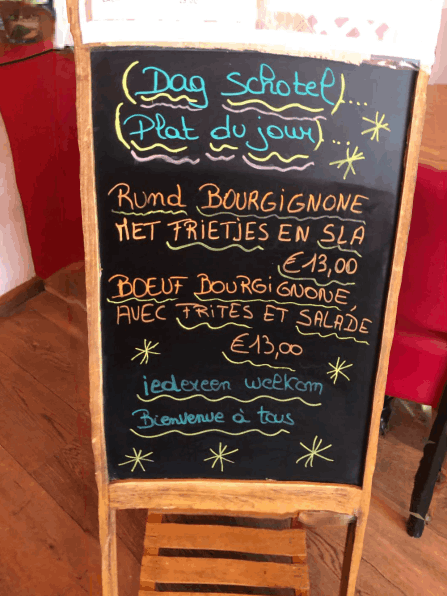 (Dag Schotel)...
(Plat du jour)...
RUND BOURGIGNONE
MET FRIETJES EN SLA
€13,00
BOEUF BOURGIGNONE,
AVEC FRITES ET SALADE
€13,00
iedereen welkom
Bienvenue à tous